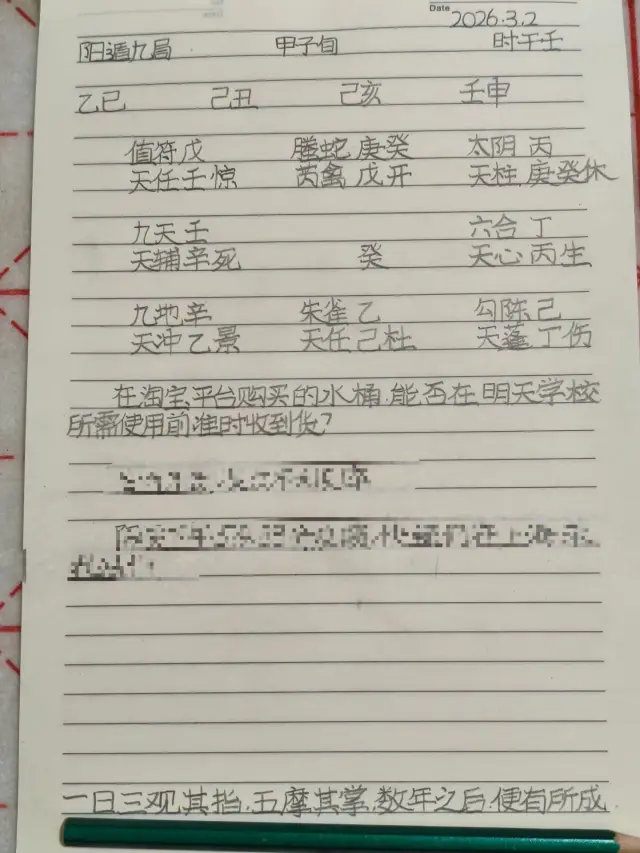 Date 2026.3.2
阳遁九局 甲子旬 时干壬
乙巳 己丑 己亥 壬申
值符戊 螣蛇庚癸 太阴丙
天任壬惊 芮禽戊开 天柱庚癸休
九天壬 六合丁
天辅辛死 癸 天心丙生
九地辛 朱雀乙 勾陈己
天冲乙景 天任己杜 天蓬丁伤
在淘宝平台购买的水桶,能否在明天学校
所需使用前准时收到货?
一日三观其指,五摩其掌,数年之后,便有所成